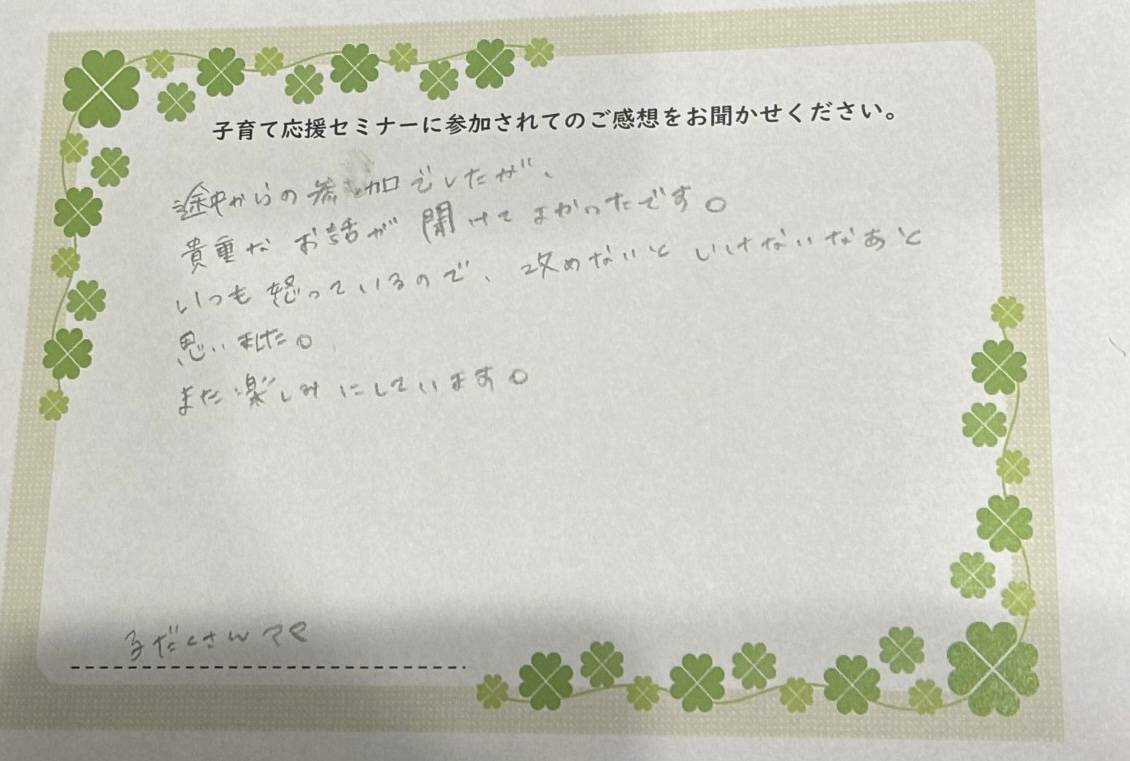 子育て応援セミナーに参加されてのご感想をお聞かせください。
途中からの参加でしたが、
貴重なお話が聞けてよかったです。
いつも怒っているので、改めないといけないなあと
思いました。
また楽しみにしています。
子だくさんママ